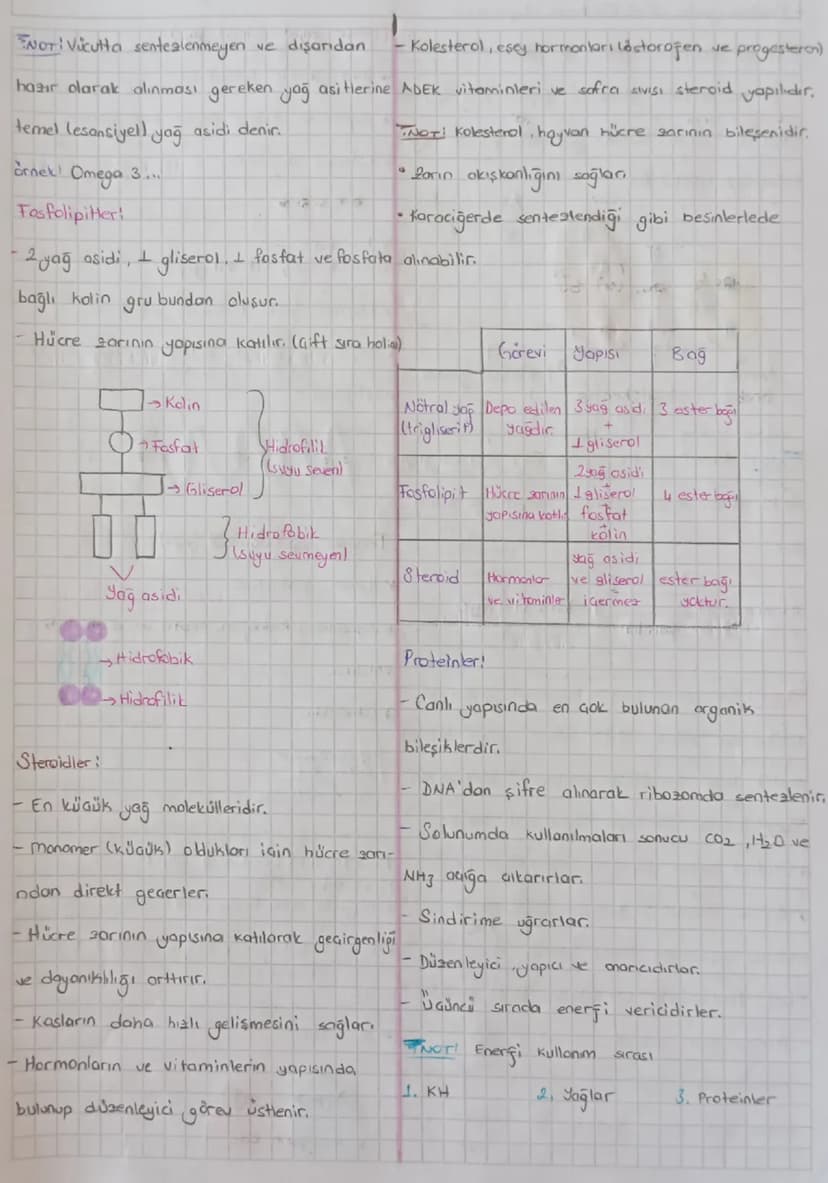 NOT! Vücutta sentezlenmeyen ve dışarıdan
hazır olarak alınması gereken yağ asitlerine
temel (esansiyel) yağ asidi denir.
örnek! Omega 3...
Fosfolipitler!
- 2 yağ asidi, 1 gliserol, 1 fosfat ve fosfata
bağlı kolin grubundan oluşur.
- Hücre zarının yapısına katılır. (Çift sıra halin)
→ Kolin
→ Fosfat
→ Gliserol
Hidrofilik
(suyu seven)
Hidrofobik
(suyu sevmeyen)
Yağ asidi
→ Hidrofobik
→ Hidrofilik
Steroidler:
- En küçük yağ molekülleridir.
- Monomer (küçük) oldukları için hücre zarı-
ndan direkt geçerler.
- Hücre zarının yapısına katılarak geçirgenliği
ve dayanıklılığı arttırır.
- Kasların daha hızlı gelişmesini sağlar.
- Hormonların ve vitaminlerin yapısında
bulunup düzenleyici görev üstlenir.
- Kolesterol, eşey hormonları (östorojen ve progesteron)
ADEK vitaminleri ve safra sıvısı steroid yapılıdır.
NOT! Kolesterol, hayvan hücre zarının bileşenidir.
• Zarın akışkanlığını sağlar.
• Karaciğerde sentezlendiği gibi besinlerlede
alınabilir.
Görevi Yapısı Bağ
Nötral yağ (trigliserit) Depo edilen yağdır. 3 yağ asidi + 1 gliserol 3 ester bağı
Fosfolipit Hücre zarının yapısına katılır 2 yağ asidi 1 gliserol fosfat kolin 4 ester bağı
Steroid Hormonlar ve vitaminler yağ asidi ve gliserol içermez ester bağı yoktur.
Proteinler!
- Canlı yapısında en çok bulunan organik
bileşiklerdir.
- DNA'dan şifre alınarak ribozomda sentezlenir.
- Solunumda kullanılmaları sonucu CO2, H2O ve
NH3 açığa çıkarırlar.
- Sindirime uğrarlar.
- Düzenleyici, yapıcı ve onarıcıdırlar.
- Üçüncü sırada enerji vericidirler.
NOT! Enerji kullanım sırası
1. KH 2. Yağlar 3. Proteinler